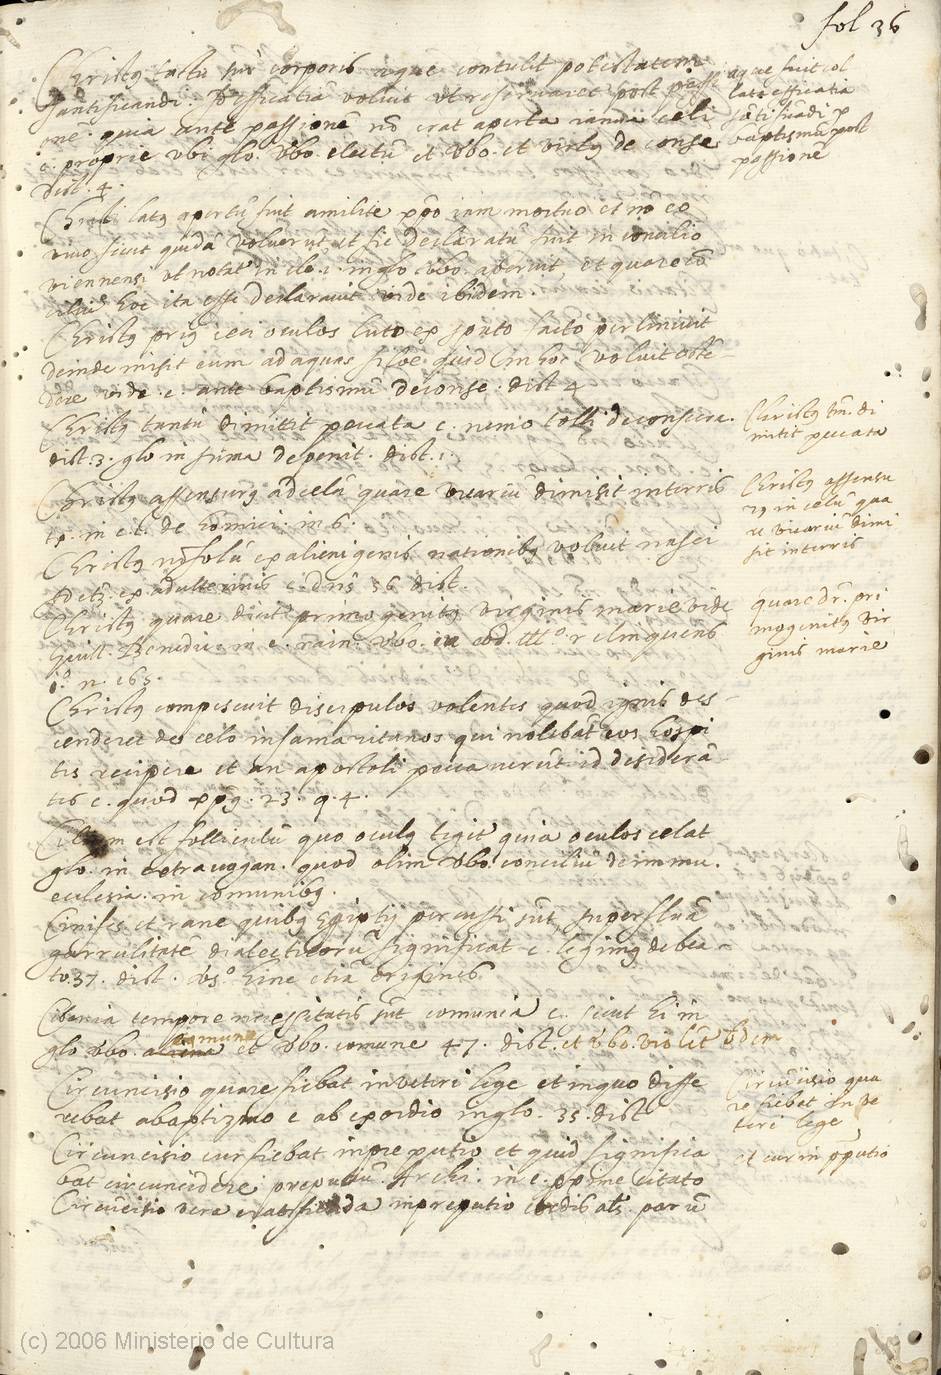 fol 36
Christus tactu sui corporis aque contulit potestatem
santificandi. Efficatia voluit ut reservaret post passi
one. quia ante passione no erat aperta ianua celi
c. proprie vbi glo. vbo. electu et vbo. et virtus de conse
dist. 4.
aque fuit col
lata efficatia
santi ficadi p
baptismu post
passione
Christi latus apertu fuit a milite xpo iam mortuo et no eo
vivo sicut quida voluerut et sic declaratu fuit in concilio
viennensi ut notat in cle. 1. in glo vbo. aperuit, et quare co
ciliu hoc ita esse declaravit vide ibidem.
Christus prius ceci oculos luto ex sputo facto perlinivit
deinde misit eum ad aquas siloe quid in hoc voluit oste
dere vide. c. ante baptismu deconse. dist 4
Christus tantu dimittit peccata c. nemo tolli deconsecra.
dist. 3. glo in suma depenit. dist. 1.
Christus tm. di
mitit peccata
Christus assensurus ad celu quare vicariu dimisit in terris
in c. t. de homici. in 6.
Christus assensu
rus in celu qua
re vicariu dimi
sit in terris
Christus no solu ex alienigenis nationibus voluit nasci
sed et ex adulterinis c. dns 56 dist.
Christus quare dicitur primogenitus virginis marie vide
Guill. Benedic. in c. rain. vbo. relinquens
1.º n. 165.
quare dr. pri
mogenitus vir
ginis marie
Christus compescuit discipulos volentes quod ignis des
cenderet de celo in samaritanos qui nolebat eos hospi
tes recipere et an apostoli peccaverut id desidera
tes c. quod xps. 23. q. 4.
Cilium est follicutu quo oculus tegit quia oculos celat
glo. in extravagan. quod olim vbo. conciliu de immu.
eclesia. in comunibus.
Cinifes et rane quibus Egiptij percussi sut, superflua
garrulitate dialecticoru significat c. legimus de bea
to 37. dist. hinc etia origines
Cibaria tempore necessitatis sut comunia c. sicut hi in
glo vbo. comuna et vbo. comune 47. dist. et vbo. violet
Circuncisio quare fiebat in veteri lege et in quo diffe
rebat a baptizmo c ab exordio in glo. 35. dist
Circucisio qua
re fiebat in ve
teri lege
Circuncisio cur fiebat in preputio et quid significa
bat circuncidere preputiu. Archi. in c. citato
et cur in pputio
Circucisio vera erat in preputio cordis als. par u
(c) 2006 Ministerio de Cultura